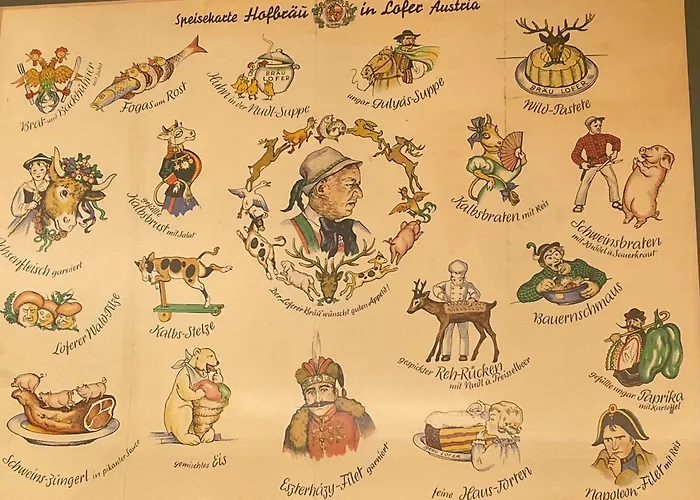 Speisekarte Hofbräu in Lofer Austria
Brat- und Backhühner
mit Salat
Fogas am Rost
BRÄU
LOFER
Huhn in der Nudl-Suppe
ungar Gulyás-Suppe
BRÄU LOFER
Wild-Pastete
Ochsenfleisch garniert
gefüllte
Kalbsbrust mit Salat
Kalbsbraten mit Reis
Schweinsbraten
mit Knödel u Sauerkraut
Der Loferer Bräu wünscht guten Appetit!
Loferer Wald-Pilze
Kalbs-Stelze
gespickter Reh-Rücken
mit Nudl u Preisselbeer
Bauernschmaus
gefüllte ungar Paprika
mit Kartoffel
Schweins-Züngerl in pikanter Sauce
gemischtes Eis
Eszterházy-Filet garniert
BRÄU LOFER
feine Haus-Torten
Napoleon-Filet mit Reis